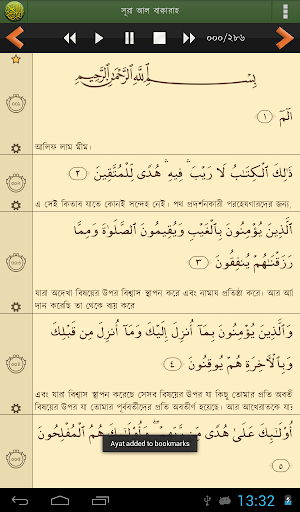 সূরা আল বাক্বারাহ
০০০/২৮৬
بِسْمِ اللَّهِ الرَّحْمَٰنِ الرَّحِيمِ
الٓمٓ ١
আলিফ লাম মীম।
ذَٰلِكَ الْكِتَابُ لَا رَيْبَ ۛ فِيهِ ۛ هُدًى لِّلْمُتَّقِينَ ٢
এ সেই কিতাব যাতে কোনই সন্দেহ নেই। পথ প্রদর্শনকারী পরহেযগারদের জন্য,
الَّذِينَ يُؤْمِنُونَ بِالْغَيْبِ وَيُقِيمُونَ الصَّلَاةَ وَمِمَّا
رَزَقْنَاهُمْ يُنفِقُونَ ٣
যারা অদেখা বিষয়ের উপর বিশ্বাস স্থাপন করে এবং নামায প্রতিষ্ঠা করে। আর আমি
দান করেছি তা থেকে ব্যয় করে
وَالَّذِينَ يُؤْمِنُونَ بِمَا أُنزِلَ إِلَيْكَ وَمَا أُنزِلَ مِن قَبْلِكَ
وَبِالْآخِرَةِ هُمْ يُوقِنُونَ ٤
এবং যারা বিশ্বাস স্থাপন করেছে সেসব বিষয়ের উপর যা কিছু তোমার প্রতি অবতীর্ণ
বিষয়ের উপর যা তোমার পূর্ববর্তীদের প্রতি অবতীর্ণ হয়েছে। আর আখেরাতকে যারা
أُولَٰئِكَ عَلَىٰ هُدًى مِّن وَأُولَٰئِكَ هُمُ الْمُفْلِحُونَ
٥
Ayat added to bookmarks
13:32